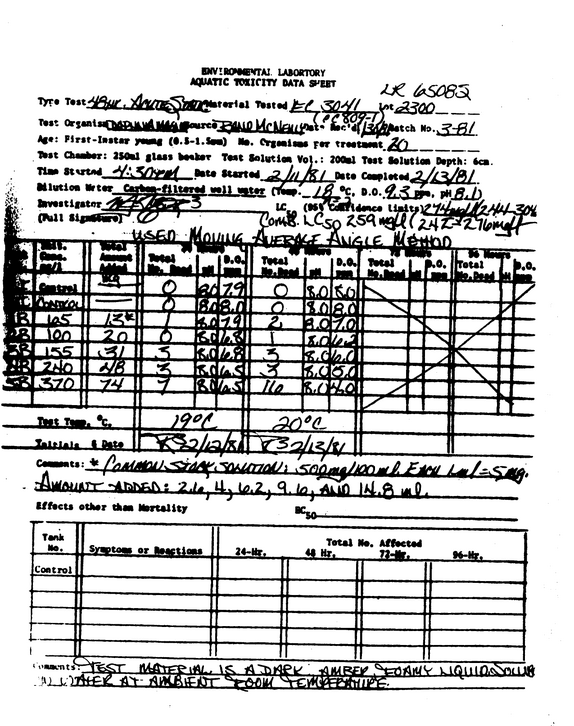 ENVIRONMENTAL LABORTORY
AQUATIC TOXICITY DATA SHEET
LR 65085
Type Test 48hr. Acute Static Material Tested EC 3041 Lot 2300
(PC 809-1)
Test Organism Daphnia Magna Source Rand McNelly Date Rec'd Batch No. 3-81
Age: First-Instar young (0.5-1.5mm) No. Organisms per treatment 20
Test Chamber: 250ml glass beaker Test Solution Vol.: 200ml Test Solution Depth: 6cm.
Time Started 4:30pm Date Started 2/11/81 Date Completed 2/13/81
Dilution Water Carbon-filtered well water (Temp. 18 °C, D.O. 9.3 ppm, pH 8.1)
Investigator LC (95% Confidence limits) 274mg/l (244-304
(Full Signature) Comb. LC50 259mg/l (242-276mg/l
USED MOVING AVERAGE ANGLE METHOD
Hours 96 Hours
Conc. mg/l Total Amount Added Total No. Dead pH D.O. ppm Total No. Dead pH D.O. ppm Total No. Dead pH D.O. ppm Total No. Dead pH D.O. ppm
Control 0 8.0 7.9 0 8.0 8.0
Control 0 8.0 8.0 0 8.0 8.0
65 13* 1 8.0 7.9 2 8.0 7.0
100 20 0 8.0 6.8 1 8.0 6.2
155 31 3 8.0 6.8 3 8.0 6.0
240 48 3 8.0 6.5 3 8.0 5.0
370 74 7 8.0 6.5 16 8.0 4.0
Test Temp. °C. 19°C 20°C
Initials & Date 2/12/81 2/13/81
Comments: * Common stock solution: 500mg/100ml. Each 1ml = 5mg.
Amount added: 2.6, 4, 6.2, 9.6, and 14.8 ml.
Effects other than Mortality EC50
Tank No. Symptoms or Reactions Total No. Affected
24-Hr. 48 Hr. 72-Hr. 96-Hr.
Control
Comments: TEST MATERIAL IS A DARK AMBER FOAMY LIQUID.
WATER AT AMBIENT ROOM TEMPERATURE.